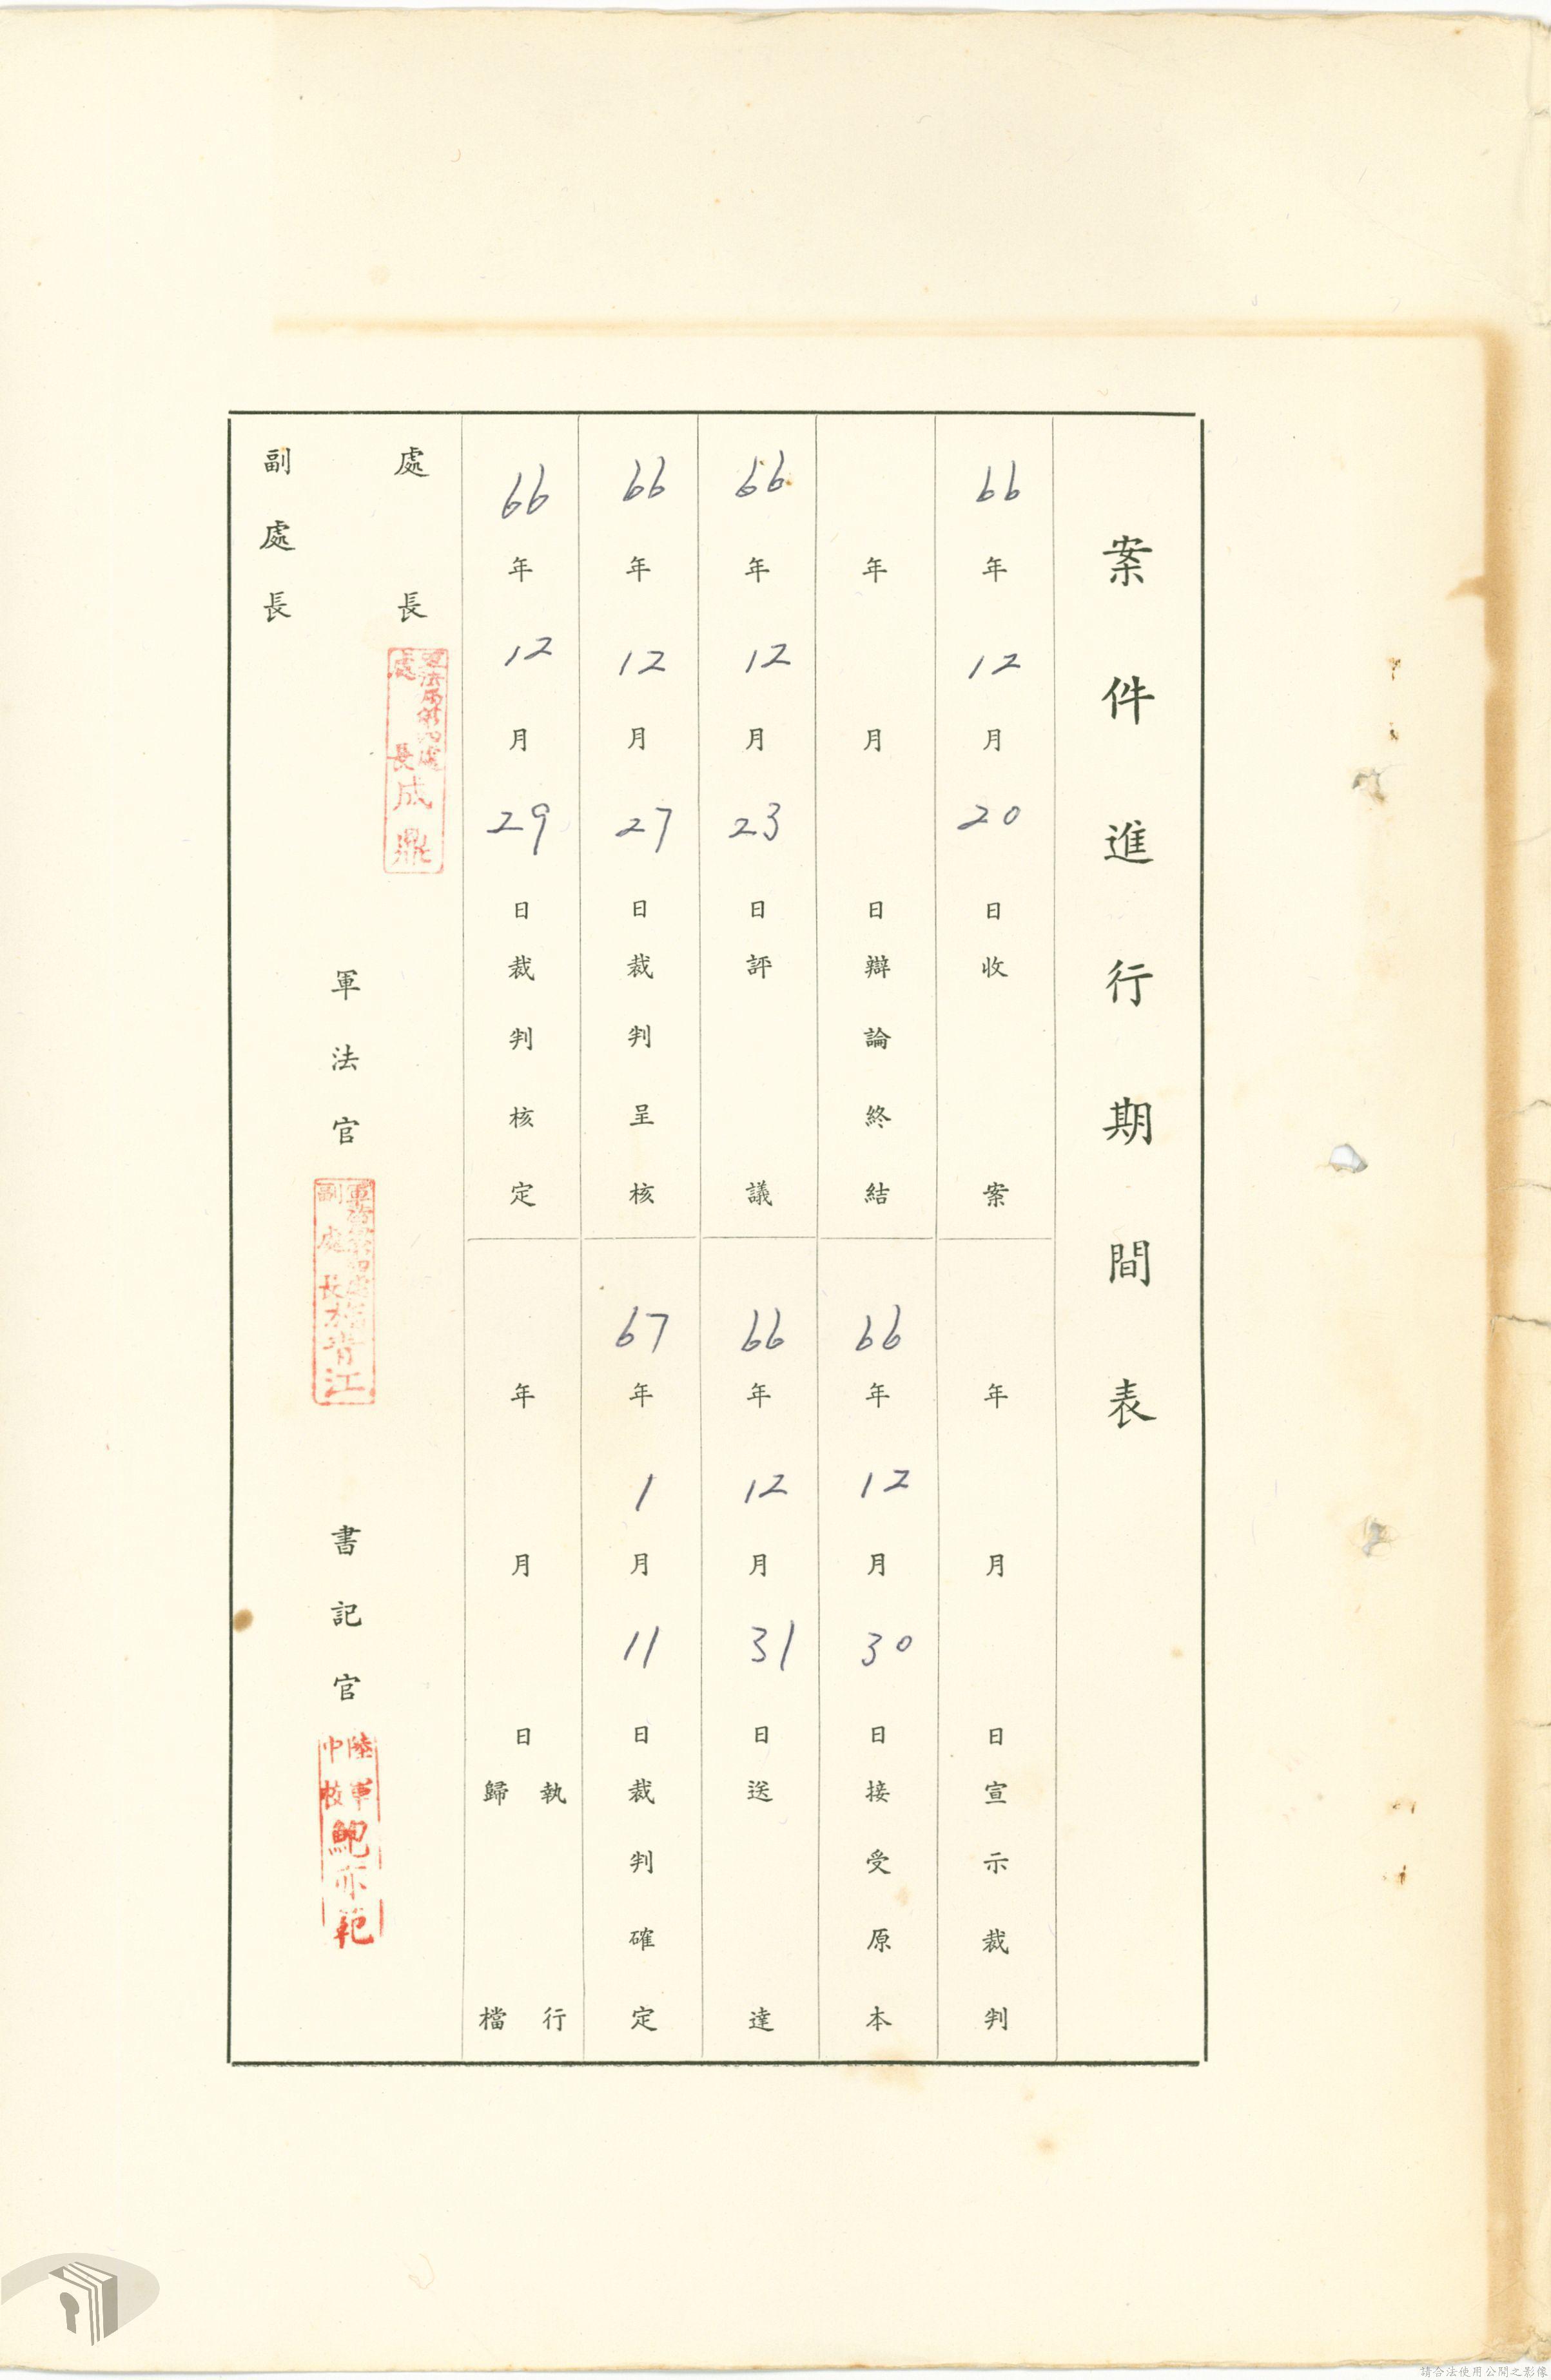 案件進行期間表
66年12月20日收案
年月日宣示裁判
年月日辯論終結
66年12月30日接受原本
66年12月23日評議
66年12月31日送達
66年12月27日裁判呈核
67年1月11日裁判確定
66年12月29日裁判核定
年月日執行歸檔
處長
處長成鼎
軍法官
副處長
青江
書記官
陸軍中校鮑亦範
副處長
請合法使用公開之影像